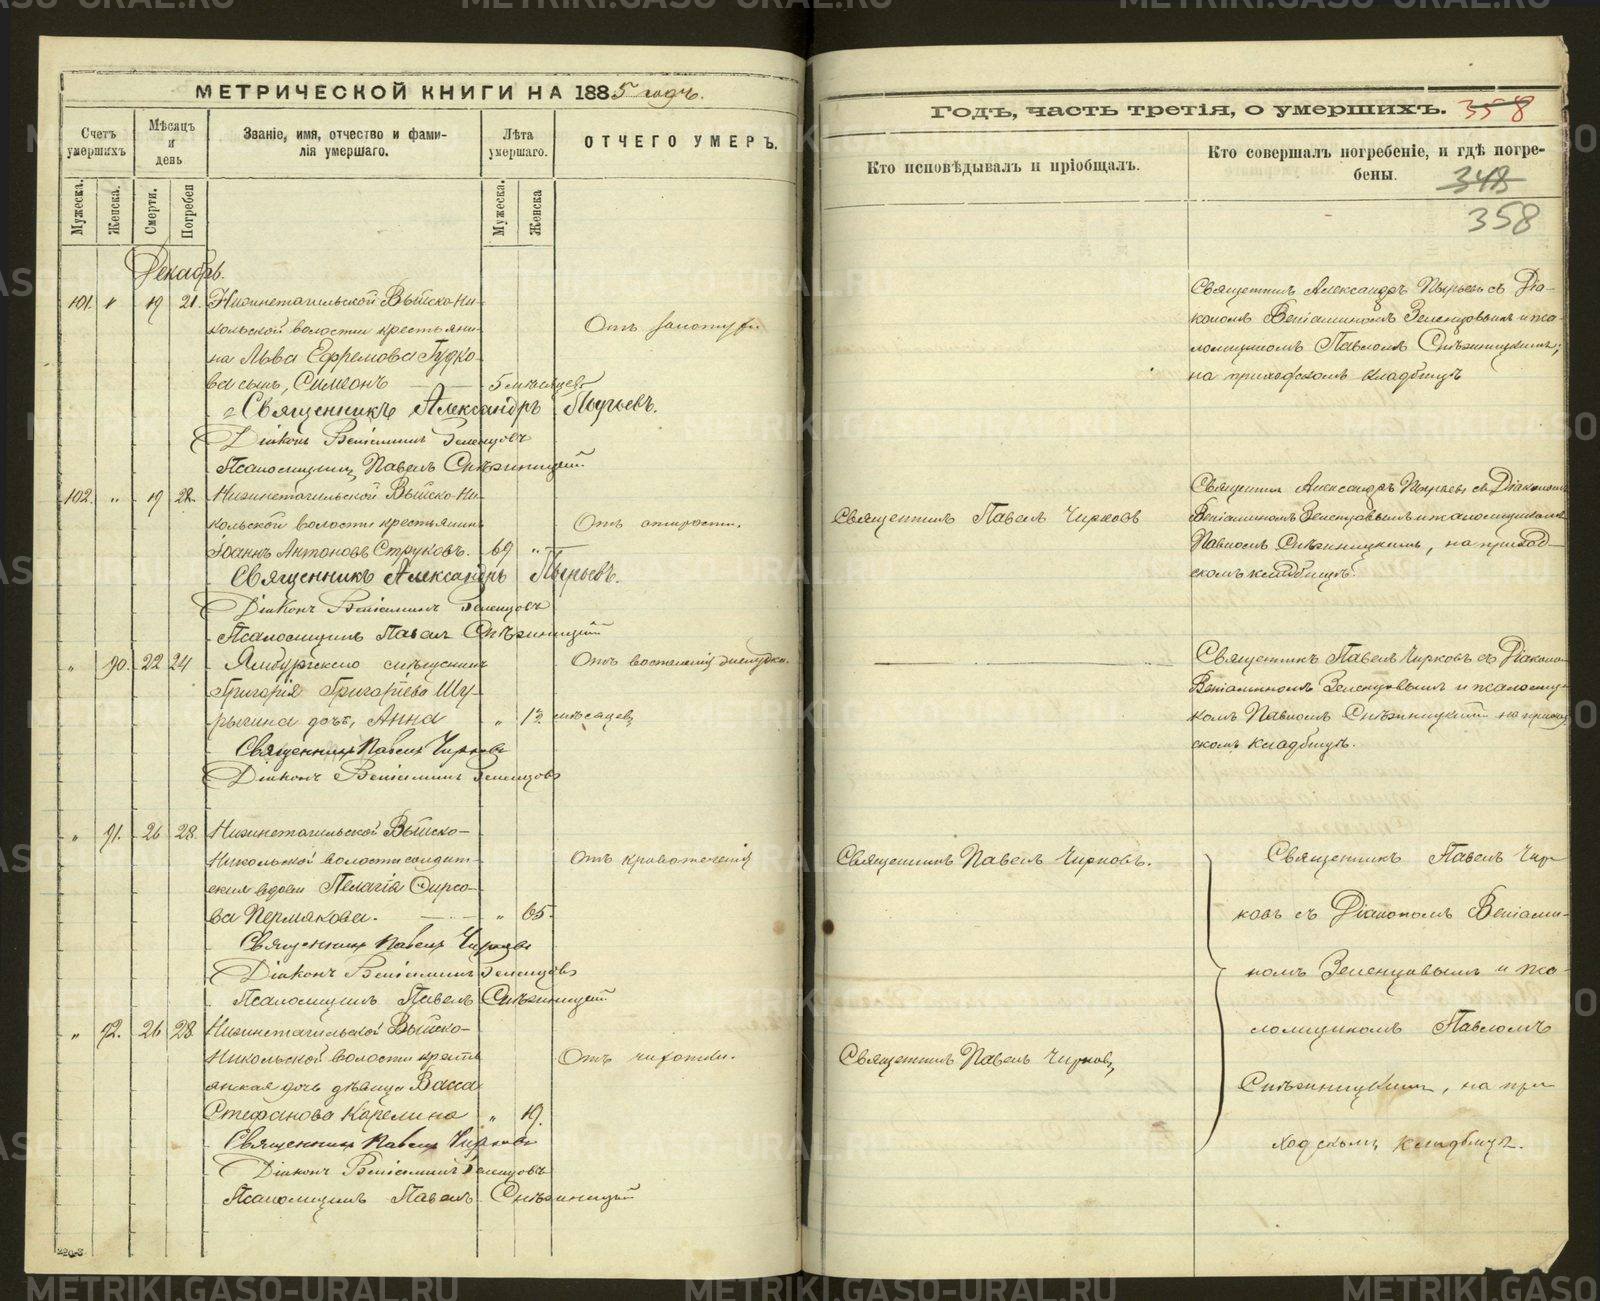 МЕТРИЧЕСКОЙ КНИГИ НА 1885 годъ.
Счетъ умершихъ
Мѣсяцъ и день
Званіе, имя, отчество и фами-
лія умершаго.
Лѣта умершаго.
ОТЧЕГО УМЕРЪ.
Мужеска.
Женска.
Смерти.
Погребен
Мужеска.
Женска
Декабрь.
101. " 19 21. Нижнетагильской Выйско-Ни-
кольской волости крестьяни-
на Льва Ефремова Гудко-
ва сынъ, Симеонъ 5 мѣсяцевъ
Священникъ Александръ Пырьевъ.
Діаконъ Веніаминъ Зеленцовъ
Псаломщикъ Павелъ Снѣжницкій
102. " 19 22. Нижнетагильской Выйско-Ни-
кольской волости крестьянинъ Отъ старости.
Іоаннъ Антоновъ Струковъ. 69 "
Священникъ Александръ Пырьевъ.
Діаконъ Веніаминъ Зеленцовъ
Псаломщикъ Павелъ Снѣжницкій
" 90. 22 24 Ямбургскаго мѣщанина Отъ воспаленія желудка.
Григорія Григоріева Шу-
рыгина дочь, Анна " 13. мѣсяцевъ
Священникъ Павелъ Чирковъ
Діаконъ Веніаминъ Зеленцовъ
" 91. 26 28 Нижнетагильской Выйско-
Никольской волости солдат- Отъ кровотеченія
ская вдова Пелагія Фирсо-
ва Пермякова. " 65.
Священникъ Павелъ Чирковъ
Діаконъ Веніаминъ Зеленцовъ
Псаломщикъ Павелъ Снѣжницкій
" 92. 26 28 Нижнетагильской Выйско-
Никольской волости крестья- Отъ чахотки.
нская дочь дѣвица Васса
Стефанова Карелина " 19.
Священникъ Павелъ Чирковъ
Діаконъ Веніаминъ Зеленцовъ
Псаломщикъ Павелъ Снѣжницкій
220-3
Годъ, часть третія, о умершихъ. 358
Кто исповѣдывалъ и пріобщалъ.
Кто совершалъ погребеніе, и гдѣ погре-
бены. 348
358
Священникъ Александръ Пырьевъ съ Діа-
кономъ Веніаминомъ Зеленцовымъ и пса-
ломщикомъ Павломъ Снѣжницкимъ,
на приходскомъ кладбищѣ
Священникъ Павелъ Чирковъ
Священникъ Александръ Пырьевъ съ Діакономъ
Веніаминомъ Зеленцовымъ и псаломщикомъ
Павломъ Снѣжницкимъ, на приход-
скомъ кладбищѣ.
Священникъ Павелъ Чирковъ съ Діакономъ
Веніаминомъ Зеленцовымъ и псаломщи-
комъ Павломъ Снѣжницкимъ на приход-
скомъ кладбищѣ.
Священникъ Павелъ Чирковъ.
Священникъ Павелъ Чир-
ковъ съ Діакономъ Веніами-
номъ Зеленцовымъ и пса-
ломщикомъ Павломъ
Священникъ Павелъ Чирковъ
Снѣжницкимъ, на при-
ходскомъ кладбищѣ.
METRIKI.GASO-URAL.RU